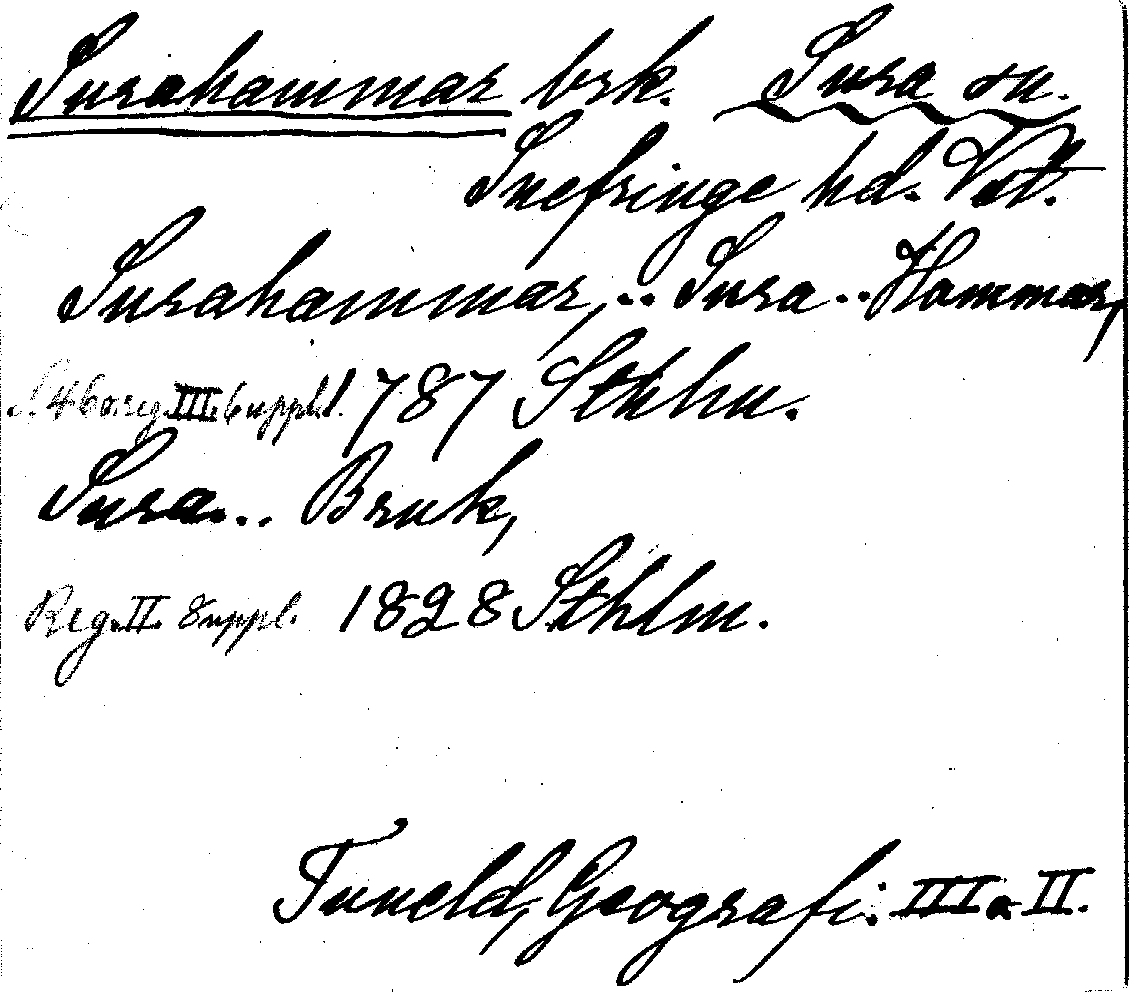 Surahammar brk. Sura sn.
Snefringe hd. Vstm.
Surahammar, .. Sura .. Hammar,
S. 460. reg. III. Suppl. 1787 Sthlm.
Sura... Bruk,
Reg. II. Suppl. 1828 Sthlm.
Tuneld, Geografi. III o II.